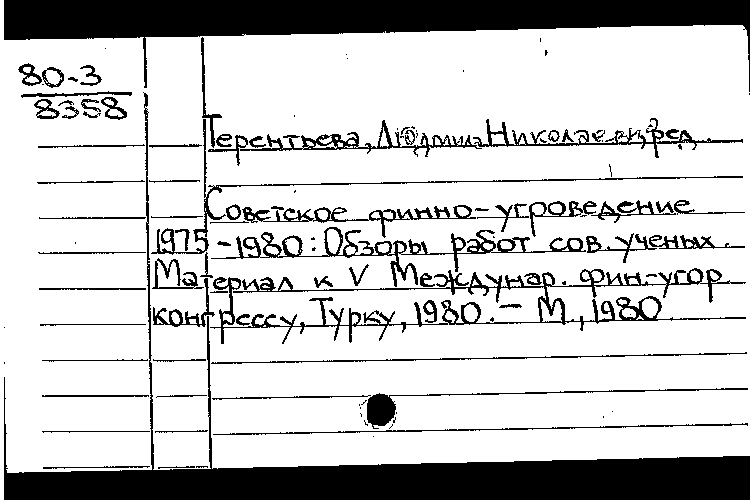 80-3
8358
Терентьева, Людмила Николаевн, ред.
Советское финно-угроведение
1975-1980: Обзоры работ сов. ученых.
Материал к V Междунар. фин.-угор.
конгрессу, Турку, 1980. - М., 1980